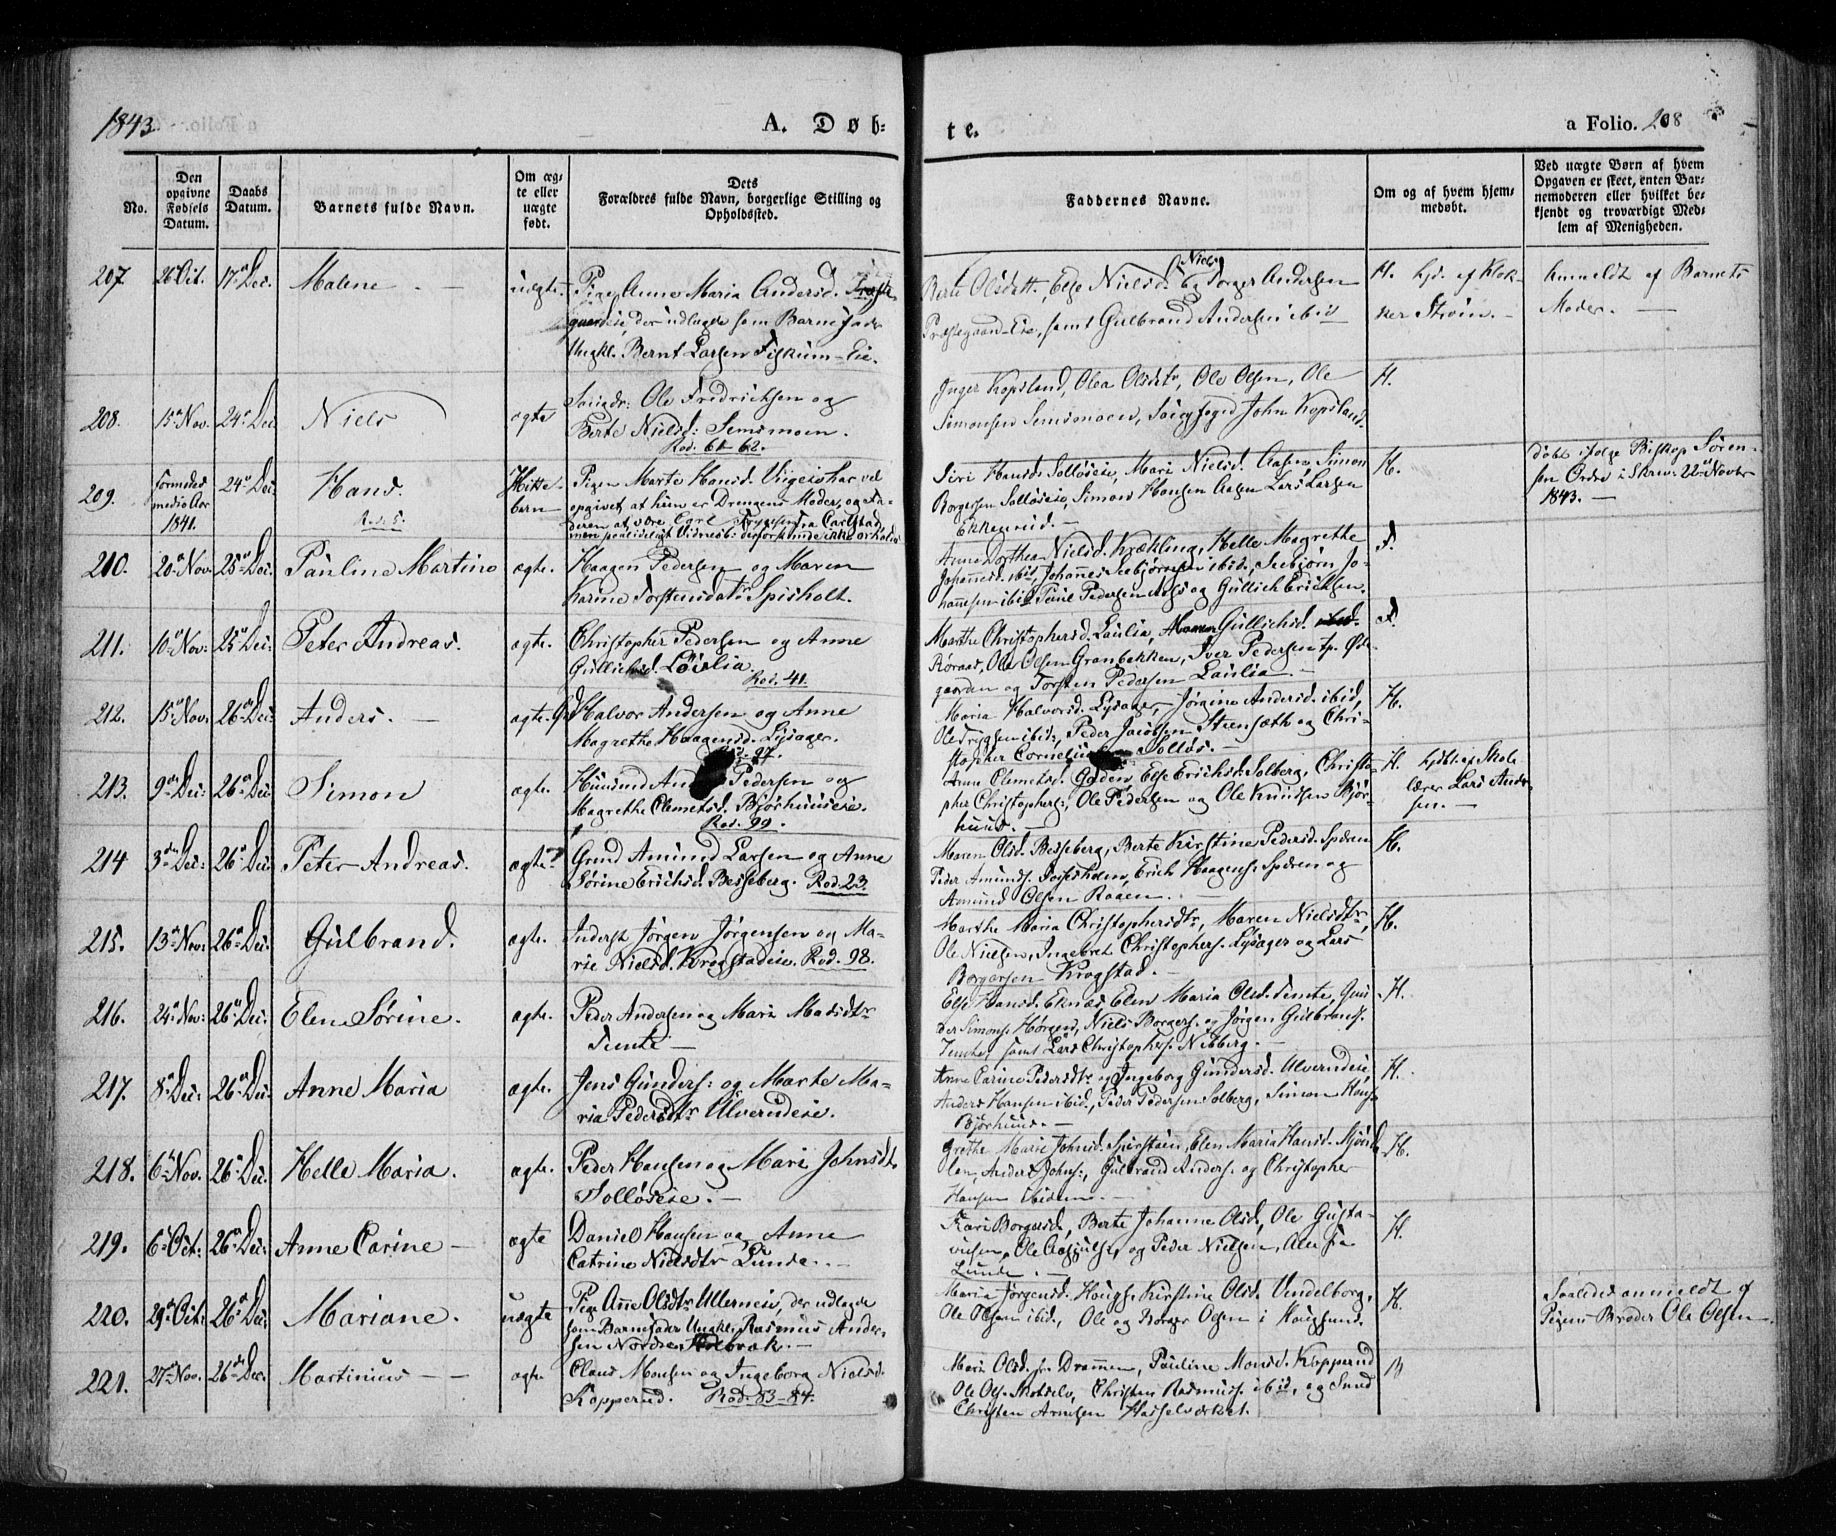 1843
A. Døb-
te.
a Folio. 208
No.
Den opgivne Fødsels Datum.
Daabs Datum.
Barnets fulde Navn.
Om ægte eller uægte født.
Dets Forældres fulde Navn, borgerlige Stilling og Opholdssted.
Faddernes Navne.
Om og af hvem hjemmedøbt.
Ved uægte Børn af hvem Opgaven er skeet, enten Barnemoderen eller hvilket bekjendt og troværdigt Medlem af Menigheden.
207. 26 Oct. 17de Dec. Malene. uægte. Pige Anne Maria Andersd.
der udlagde som Barnefader
Ungkl. Bernt Larsen Fiskum-Eie.
Berte Olsdatt., Else Nielsd. og Torger Andersen
Niels
Præstegaard-Eie, samt Gulbrand Andersen ibid
H. hjd. af Klok-
ker Strøm.
Anmeldt af Barnets
Moder.
208. 15de Nov. 24de Dec. Niels ægte Ole Fredriksen og
Berte Nielsd: Semsmoen.
Rod. 61 62.
Inger Kopsland, Olea Olsdtr, Ole Olsen, Ole
Simonsen Semsmoen, John Kopsland.
H.
209. 1841. 24de Dec. Hans. Rod. 5. Hitte-
barn
Pigen Marte Hansd. Vigeie har vel
opgivet at hun er Drengens Moder, og Fa-
deren at være Fryxesen fra Carlstad
men paalideligt Vidnesb: derfor kunde ikke erholdes
Siri Hansd. Solløseie, Mari Nielsd. Aasen, Simon
Borgersen Solløseie, Simon Hansen Aasen Lars Larsen
H.
døbt ifølge Biskop Søren-
sen Ordre i Skriv. 22de Novbr
1843.
210. 20de Nov. 25de Dec. Pauline Martine ægte. Haagen Pedersen og Maren
Karine Torstensdatr Spisholt.
Anne Dorthea Nielsd. Krækling, Helle Magrethe
Johannesd. ibid, Johannes Seebjørnsen ibid, Seebjørn Jo-
hannesen ibid Poul Pedersen og Gullich Ericksen.
F.
211. 10de Nov: 25de Dec: Peter Andreas. ægte. Christopher Pedersen og Anne
Gullichsd. Løvlia.
Rod. 41.
Marthe Christophersd. Laulia, Maren Gullichsd.
Ole Olsen Granbekken, Iver Pedersen
og Torsten Pedersen Laulia.
F.
212. 15de Nov. 26de Dec: Anders. ægte. Halvor Andersen og Anne
Magrethe Haagensd. Lysager.
Rod. 97.
Maria Halvorsd. Lysager, Jørgine Andersd. ibid,
Ole Trygsen ibid, Peder Jacobsen Steensæth og Chri-
stopher Cornelius Solløs.
H.
213. 9de Dec: 26de Dec. Simon ægte. Huusmd Pedersen og
Magrethe Clemetsd. Bjørhuuseie.
Rod. 99.
Anne Clemetsd. Goden, Else Erichsd. Solberg, Christo-
pher Christophers:, Ole Pedersen og Ole Knudsen Bjør-
huus.
H. hjdbt. af Skole
lærer Lars Ander-
sen.
214 3de Dec: 26de Dec: Peter Andreas. ægte Grmd Amund Larsen og Anne
Sørine Erichsd. Besseberg. Rod. 23.
Maren Olsd. Besseberg, Berte Kirstine Pedersd. Spæren
Peder Amunds. Erich Haagens. Spæren og
Amund Olsen Raaen.
H.
215. 13de Nov: 26de Dec: Gulbrand. ægte. Inderst Jørgen Jørgensen og Ma-
rie Nielsd. Krogstadeie. Rod. 98.
Marthe Maria Christophersdtr, Maren Nielsdtr.
Ole Nielsen, Ingebret Christophers. Lysager og Lars
Borgersen Krogstad.
H.
216. 24de Nov: 26de Dec: Elen Sørine. ægte. Peder Andersen og Mari Madsdtr
Temte
Else Hansd. Eknæs Elen Maria Olsd. Temte, Gun-
der Simons. Hørgend, Niels Borgers. og Jørgen Gulbrands.
Temte, samt Lars Christophers. Neberg.
H.
217. 8de Dec: 26de Dec. Anne Maria ægte. Jens Gunders: og Marte Ma-
ria Pedersdtr Ulverudeie.
Anne Carine Pedersdtr og Ingeborg Gundersd. Ulverudeie,
Anders Hansen ibid., Peder Pedersen Solberg, Simon Hans.
Bjørhuus.
H.
218. 6de Nov. 26de Dec. Helle Maria. ægte. Peder Hansen og Mari Johnsdtr
Solløseie.
Grethe Marie Johnsd. Elen Maria Hansd. Mjønda-
len, Anders Johns:, Gulbrand Anders. og Christopher
Hansen ibidem.
H.
219. 6te Oct: 26de Dec: Anne Carine ægte Daniel Hansen og Anne
Catrine Nielsdtr Lunde.
Kari Borgersd, Berte Johanne Olsd, Ole Gusta-
vusen, Ole og Peder Nielsen, Alle fra
Lunde.
H.
220. 29de Oct: 26de Dec: Mariane. uægte Pige Anne Olsdtr Ullerneie, der udlagde
som Barnefader Ungkl. Rasmus Ander-
sen Nordre
Maria Jørgensd. Hougs. Kirstine Olsd. Vendelborg,
Ole Olsen ibid, Ole og Borger Olsen i Hougsund.
H.
Saaledes anmeldt af
Pigens Broder Ole Olsen.
221. 27de Nov. 26de Dec. Martinius ægte Claus Monsen og Ingeborg Nielsd.
Kopperud. Rod. 83-84.
Mari Olsd. fr. Drammen, Pauline Monsd. Kopperud
Ole Ols. Skotselv, Christen Rasmuss. ibid, og Smed
Christen Arntsen Hasselværket.